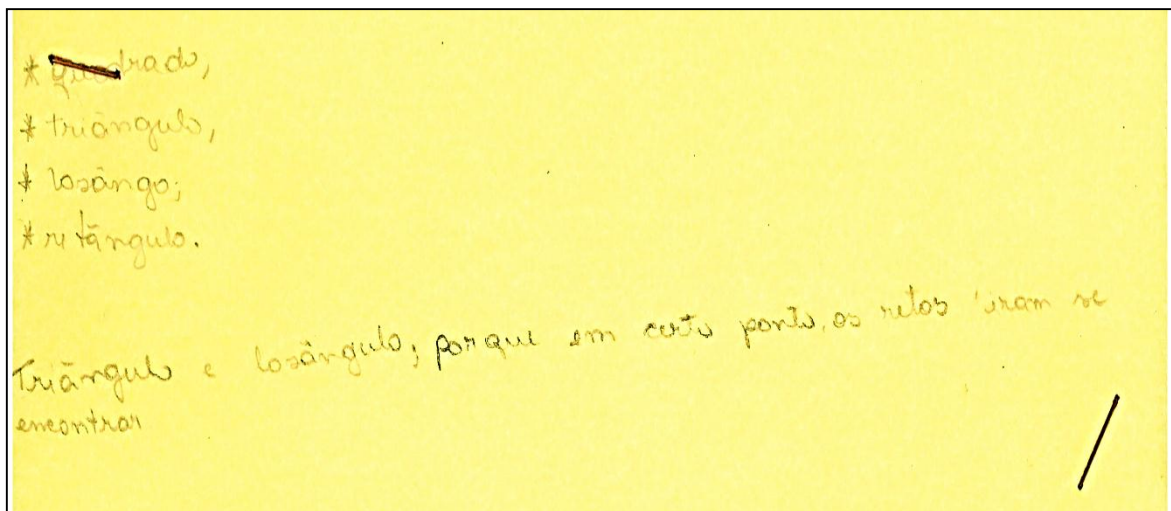 * quadrado,
* triângulo,
* losângo;
* retângulo.
Triângulo e losângulo, porque em certo ponto, os retos iram se
encontrar